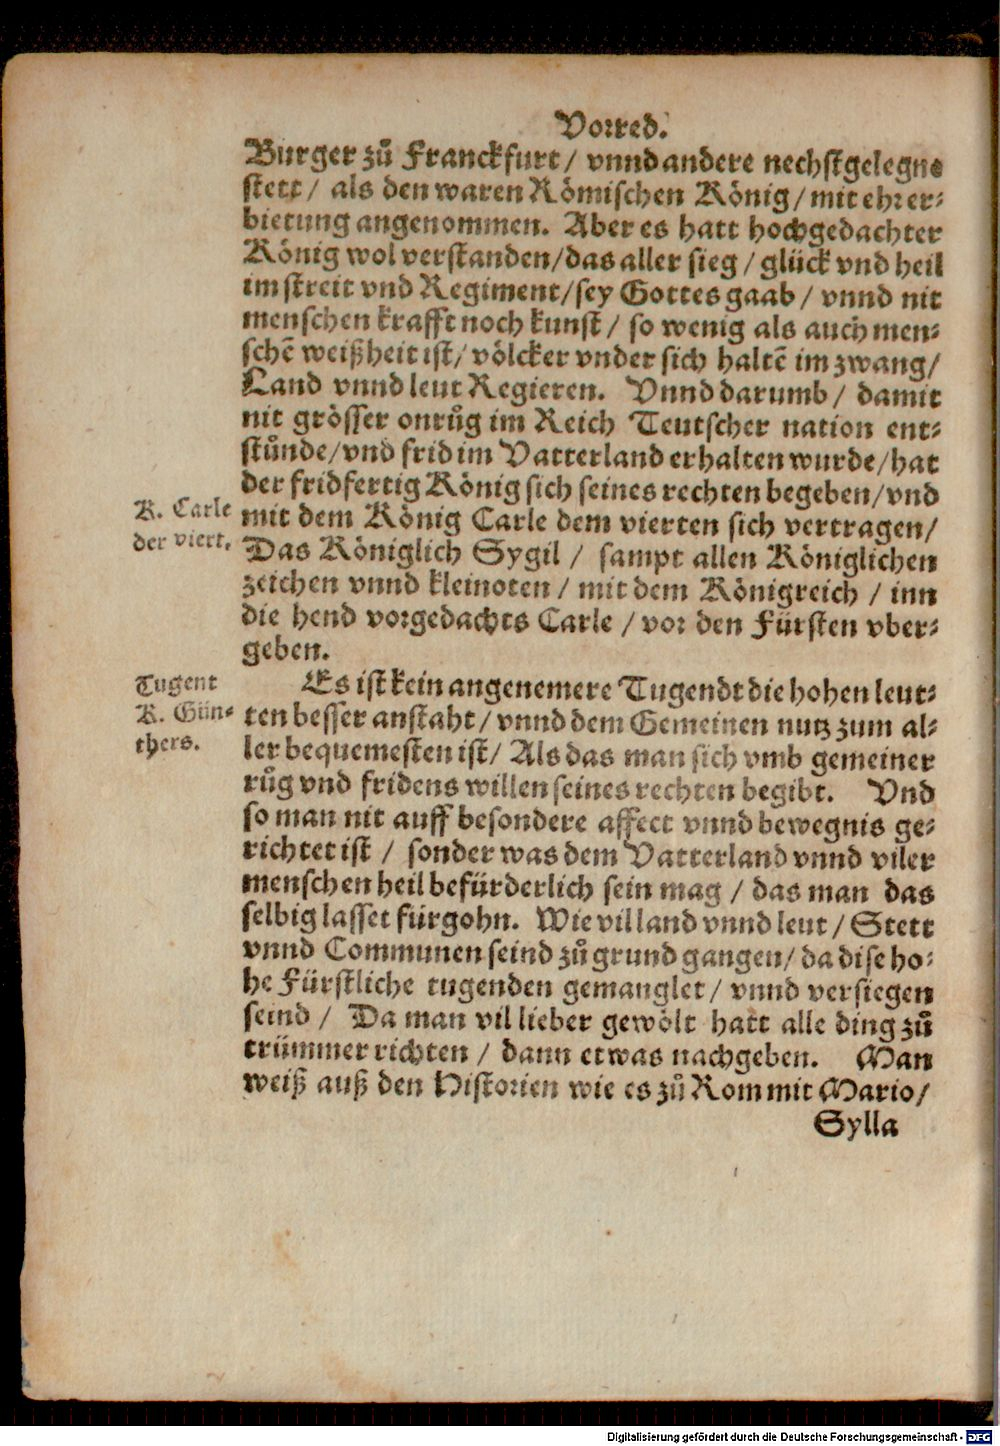 Vorred.
Burger zů Franckfurt / vnnd andere nechstgelegne
stett / als den waren Römischen König / mit ehrer-
bietung angenommen. Aber es hatt hochgedachter
König wol verstanden / das aller sieg / glück vnd heil
im streit vnd Regiment / sey Gottes gaab / vnnd nit
menschen krafft noch kunst / so wenig als auch men-
schẽ weißheit ist / völcker vnder sich haltẽ im zwang /
Land vnnd leut Regieren. Vnnd darumb / damit
nit grösser onrůg im Reich Teutscher nation ent-
stůnde / vnd frid im Vatterland erhalten wurde / hat
der fridfertig König sich seines rechten begeben / vnd
K. Carle
der viert.
mit dem König Carle dem vierten sich vertragen /
Das Königlich Sygil / sampt allen Königlichen
zeichen vnnd kleinoten / mit dem Königreich / inn
die hend vorgedachts Carle / vor den Fürsten vber-
geben.
Tugent
K. Gün-
thers.
Es ist kein angenemere Tugendt die hohen leut-
ten besser anstaht / vnnd dem Gemeinen nutz zum al-
ler bequemesten ist / Als das man sich vmb gemeiner
růg vnd fridens willen seines rechten begibt. Vnd
so man nit auff besondere affect vnnd bewegnis ge-
richtet ist / sonder was dem Vatterland vnnd viler
menschen heil befürderlich sein mag / das man das
selbig lasset fürgohn. Wie vil land vnnd leut / Stett
vnnd Communen seind zů grund gangen / da dise ho-
he Fürstliche tugenden gemanglet / vnnd versiegen
seind / Da man vil lieber gewölt hatt alle ding zů
trümmer richten / dann etwas nachgeben. Man
weiß auß den Historien wie es zů Rom mit Mario /
Sylla
Digitalisierung gefördert durch die Deutsche Forschungsgemeinschaft - DFG